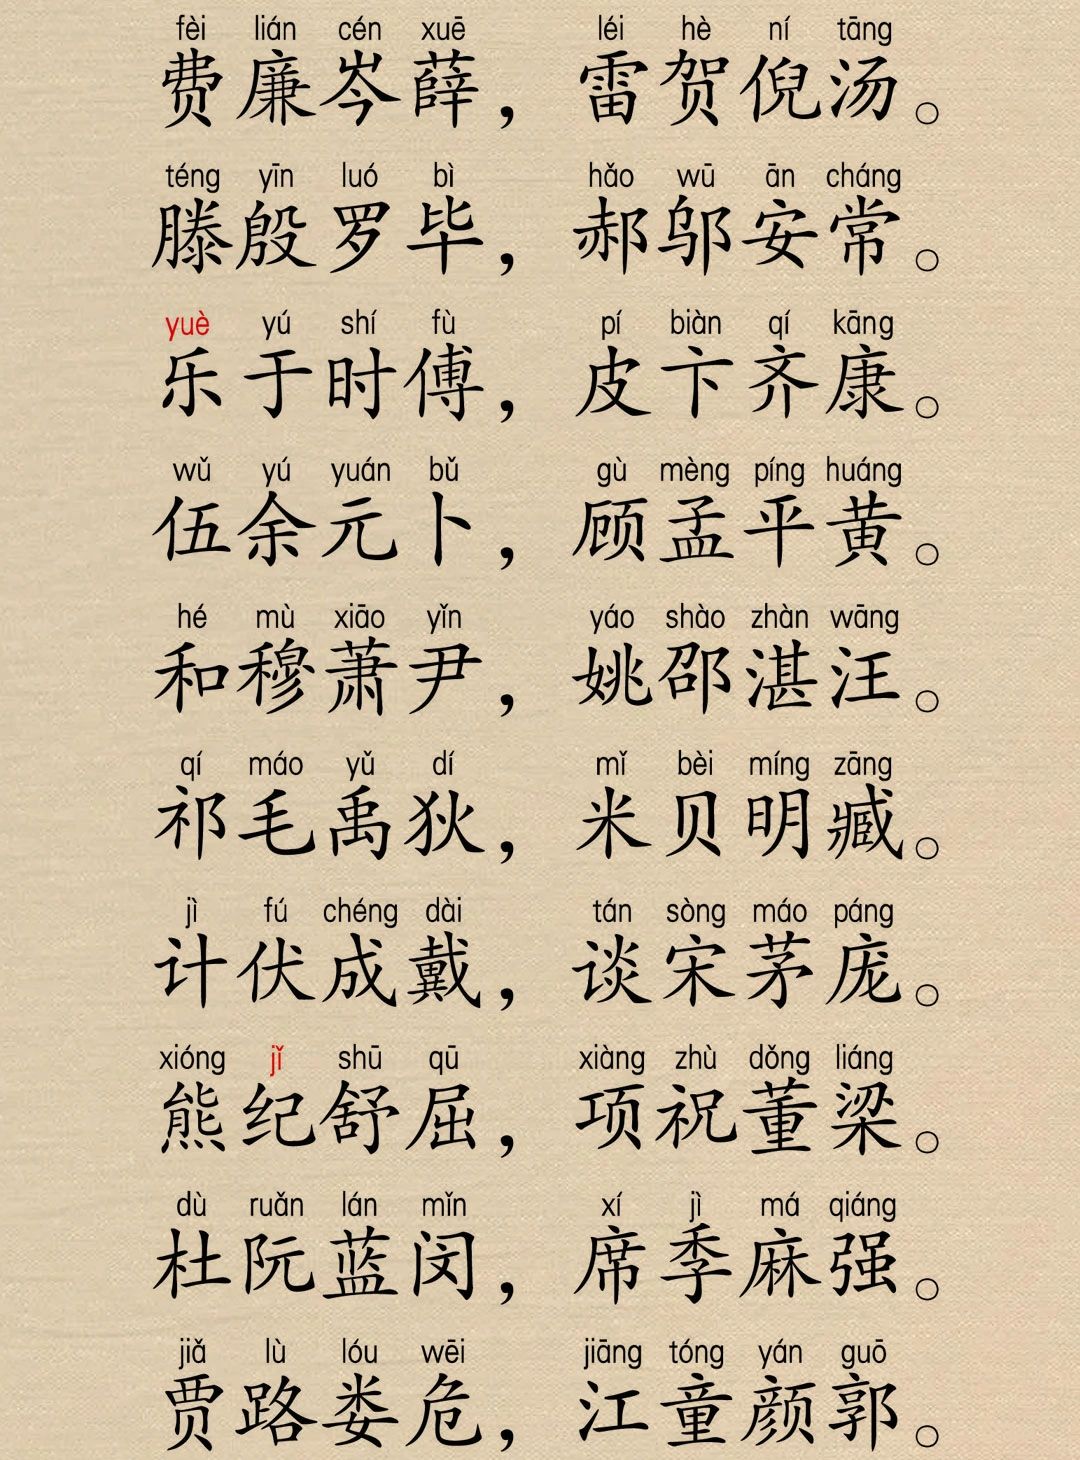 fèi lián cén xuē léi hè ní tāng
费廉岑薛，雷贺倪汤。
téng yīn luó bì hǎo wū ān cháng
滕殷罗毕，郝邬安常。
yuè yú shí fù pí biàn qí kāng
乐于时傅，皮卞齐康。
wǔ yú yuán bǔ gù mèng píng huáng
伍余元卜，顾孟平黄。
hé mù xiāo yǐn yáo shào zhàn wāng
和穆萧尹，姚邵湛汪。
qí máo yǔ dí mǐ bèi míng zāng
祁毛禹狄，米贝明臧。
jì fú chéng dài tán sòng máo páng
计伏成戴，谈宋茅庞。
xióng jǐ shū qū xiàng zhù dǒng liáng
熊纪舒屈，项祝董梁。
dù ruǎn lán mǐn xí jì má qiáng
杜阮蓝闵，席季麻强。
jiǎ lù lóu wēi jiāng tóng yán guō
贾路娄危，江童颜郭。